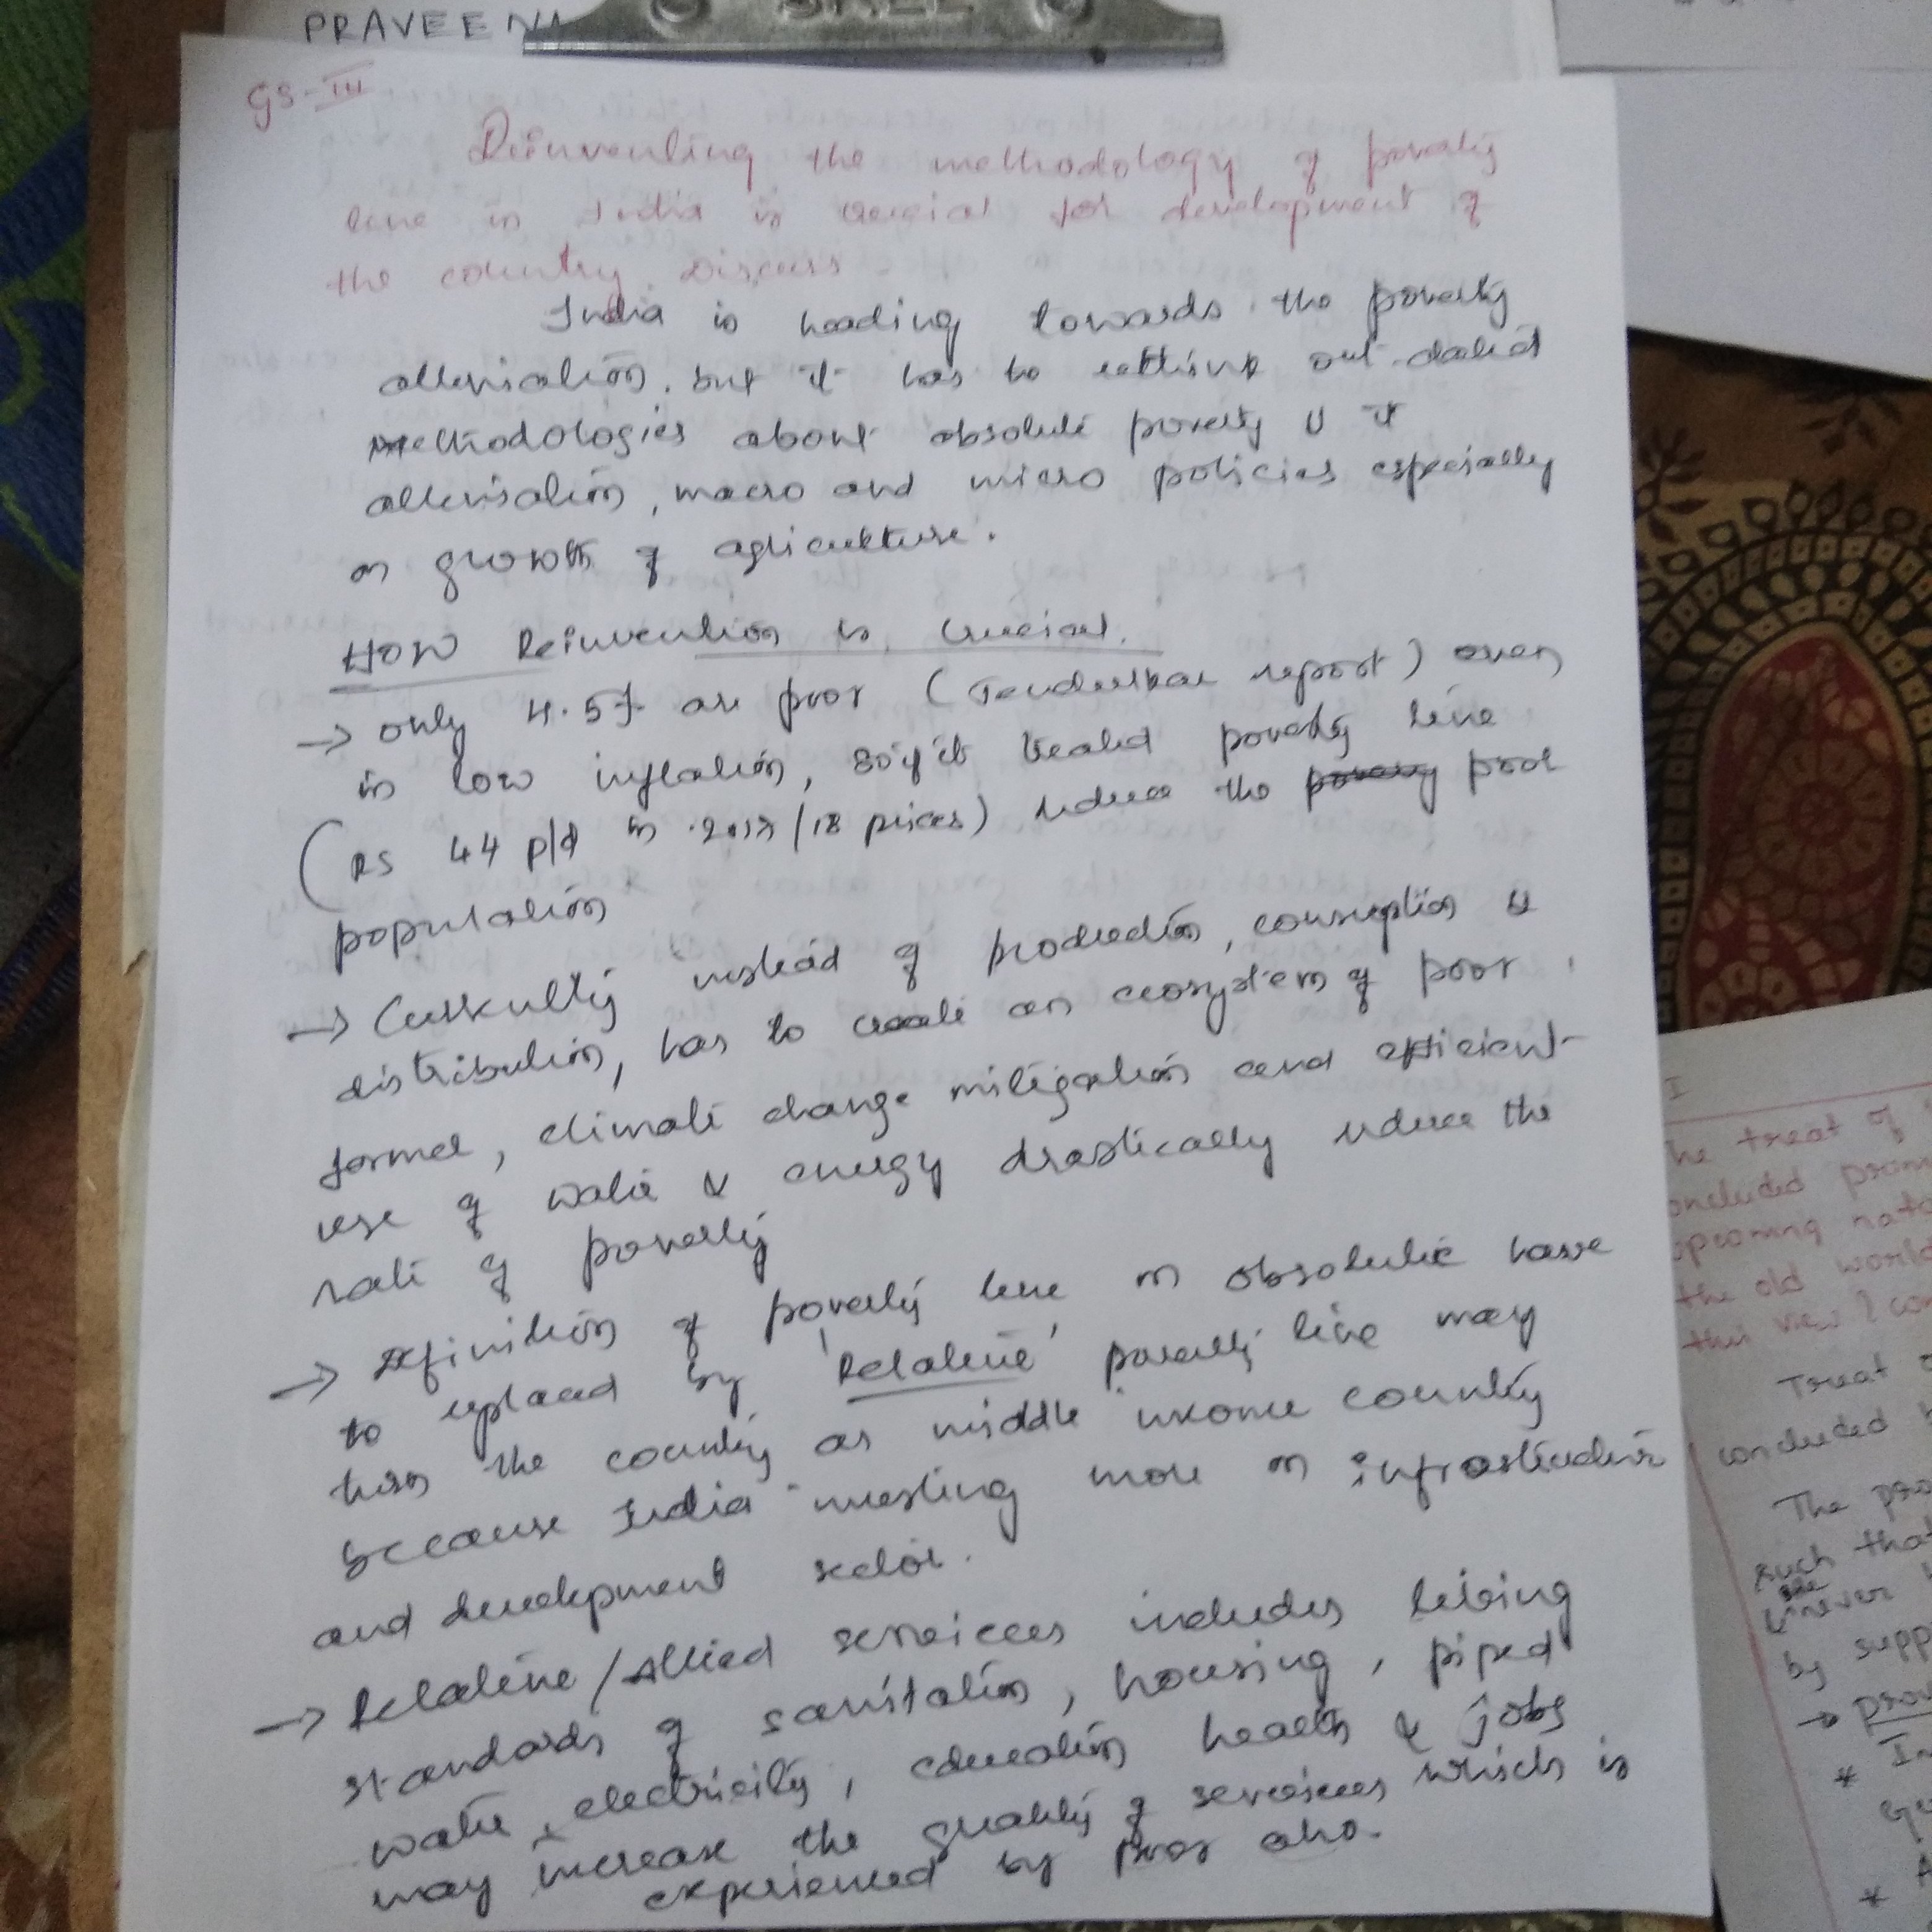 PRAVEENA
GS-III
Reinventing the methodology of poverty
line in India is crucial for development of
the country. Discuss
India is heading towards the poverty
alleviation, but it has to rethink out-dated
methodologies about absolute poverty & it
alleviation, macro and micro policies especially
on growth of agriculture.
HOW Reinvention is crucial.
→ only 4.5% are poor (Tendulkar report) even
in low inflation, so if it treated poverty line
(RS 44 p/d in 2017/18 prices) reduce the poor
population
→ Currently instead of production, consumption &
distribution, has to create an ecosystem of poor
farmer, climate change mitigation and efficient
use of water & energy drastically reduce the
rate of poverty
→ Definition of poverty line on absolute have
to replaced by 'Relative' poverty line may
turn the country as middle income country
because India investing more on infrastructure
and development sector.
→ Relative/Allied services includes living
standards of sanitation, housing, piped
water, electricity, education health & jobs
may increase the quality of services which is
experienced by poor also.
I
The treat of
concluded
upcoming
the old world
this view
Treat
concluded
The
such that
never
by
→
*
*